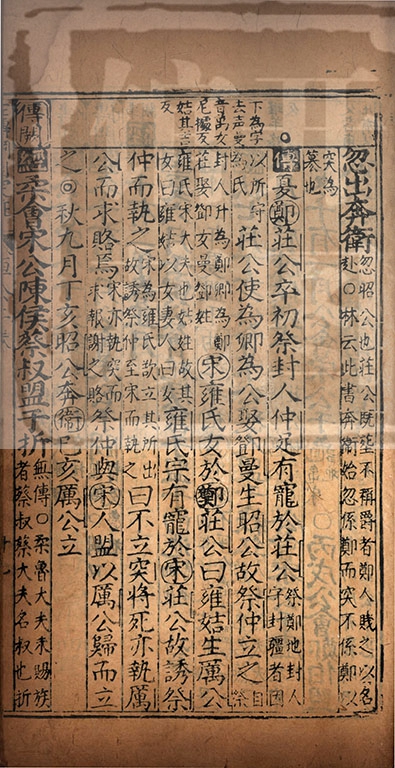 忽出奔衛忽昭公也莊公既塟不稱爵者鄭人賤之以名赴○林云此書奔衛始忽係鄭而突不係鄭以
突為篡也
下為字去声曼音萬女尼據反姞其吉反
傳夏鄭莊公卒初祭封人仲足有寵於莊公祭鄭地封人守封疆者因
以所守為氏莊公使為卿為公娶鄧曼生昭公故祭仲立之自祭
封人升為鄭卿為鄭莊娶鄧女曼鄧姓宋雍氏女於鄭莊公曰雍姞生厲公
雍氏宋大夫也姞姓故其女曰雍姞以女妻人曰女雍氏宗有寵於宋莊公故誘祭
仲而執之宋為雍氏欲立其所出故誘祭仲至宋而執之曰不立突將死亦執厲
公而求賂焉宋亦執突而求報謝之賂祭仲與宋人盟以厲公歸而立
之○秋九月丁亥昭公奔衛已亥厲公立
傳闕
經柔會宋公陳侯蔡叔盟于折無傳○柔魯大夫未賜族者蔡叔蔡大夫名叔也折